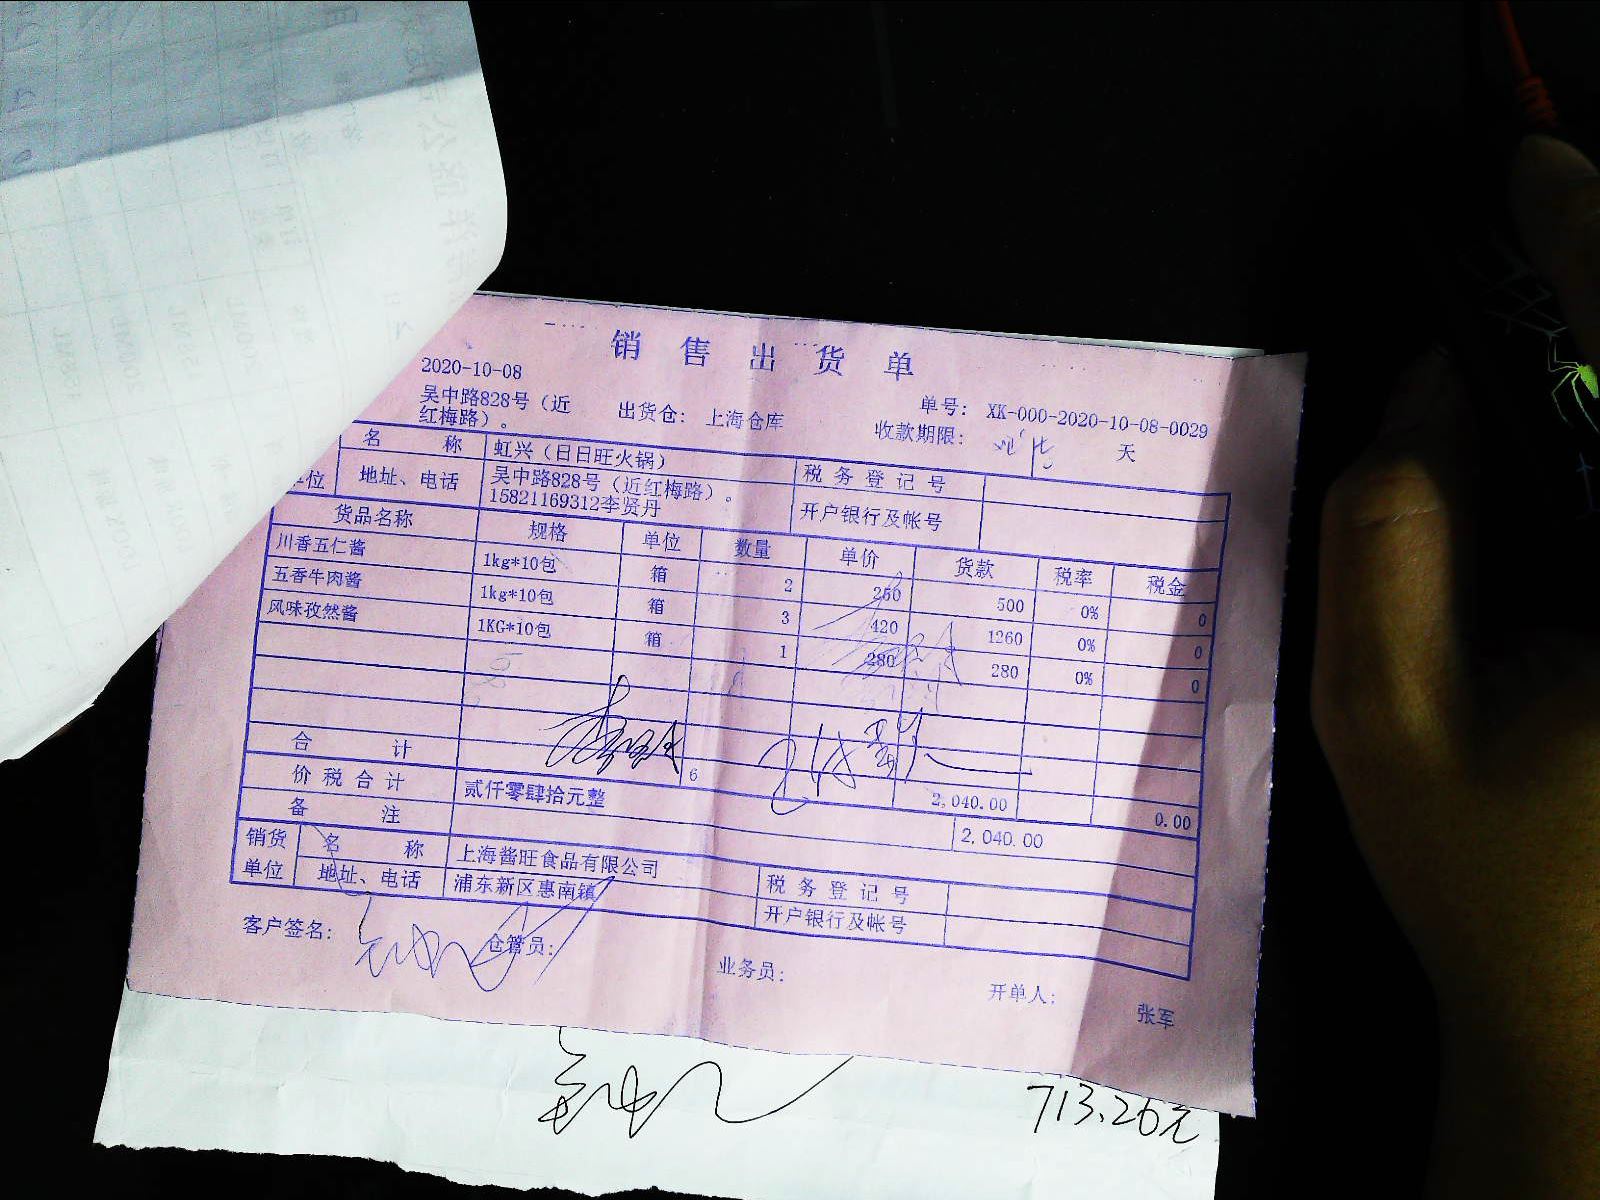 销售出货单
2020-10-08
吴中路828号（近
红梅路）。
出货仓：上海仓库
单号：XK-000-2020-10-08-0029
收款期限： 天
名 称 虹兴（日日旺火锅） 税务登记号
位 地址、电话 吴中路828号（近红梅路）。
15821169312李贤丹 开户银行及帐号
货品名称 规格 单位 数量 单价 货款 税率 税金
川香五仁酱 1kg*10包 箱 2 250 500 0% 0
五香牛肉酱 1kg*10包 箱 3 420 1260 0% 0
风味孜然酱 1KG*10包 箱 1 280 280 0% 0
合 计 6 2,040.00 0.00
价税合计 贰仟零肆拾元整 2,040.00
备 注
销货 名 称 上海酱旺食品有限公司 税务登记号
单位 地址、电话 浦东新区惠南镇 开户银行及帐号
客户签名： 仓管员： 业务员： 开单人： 张军
713.26元